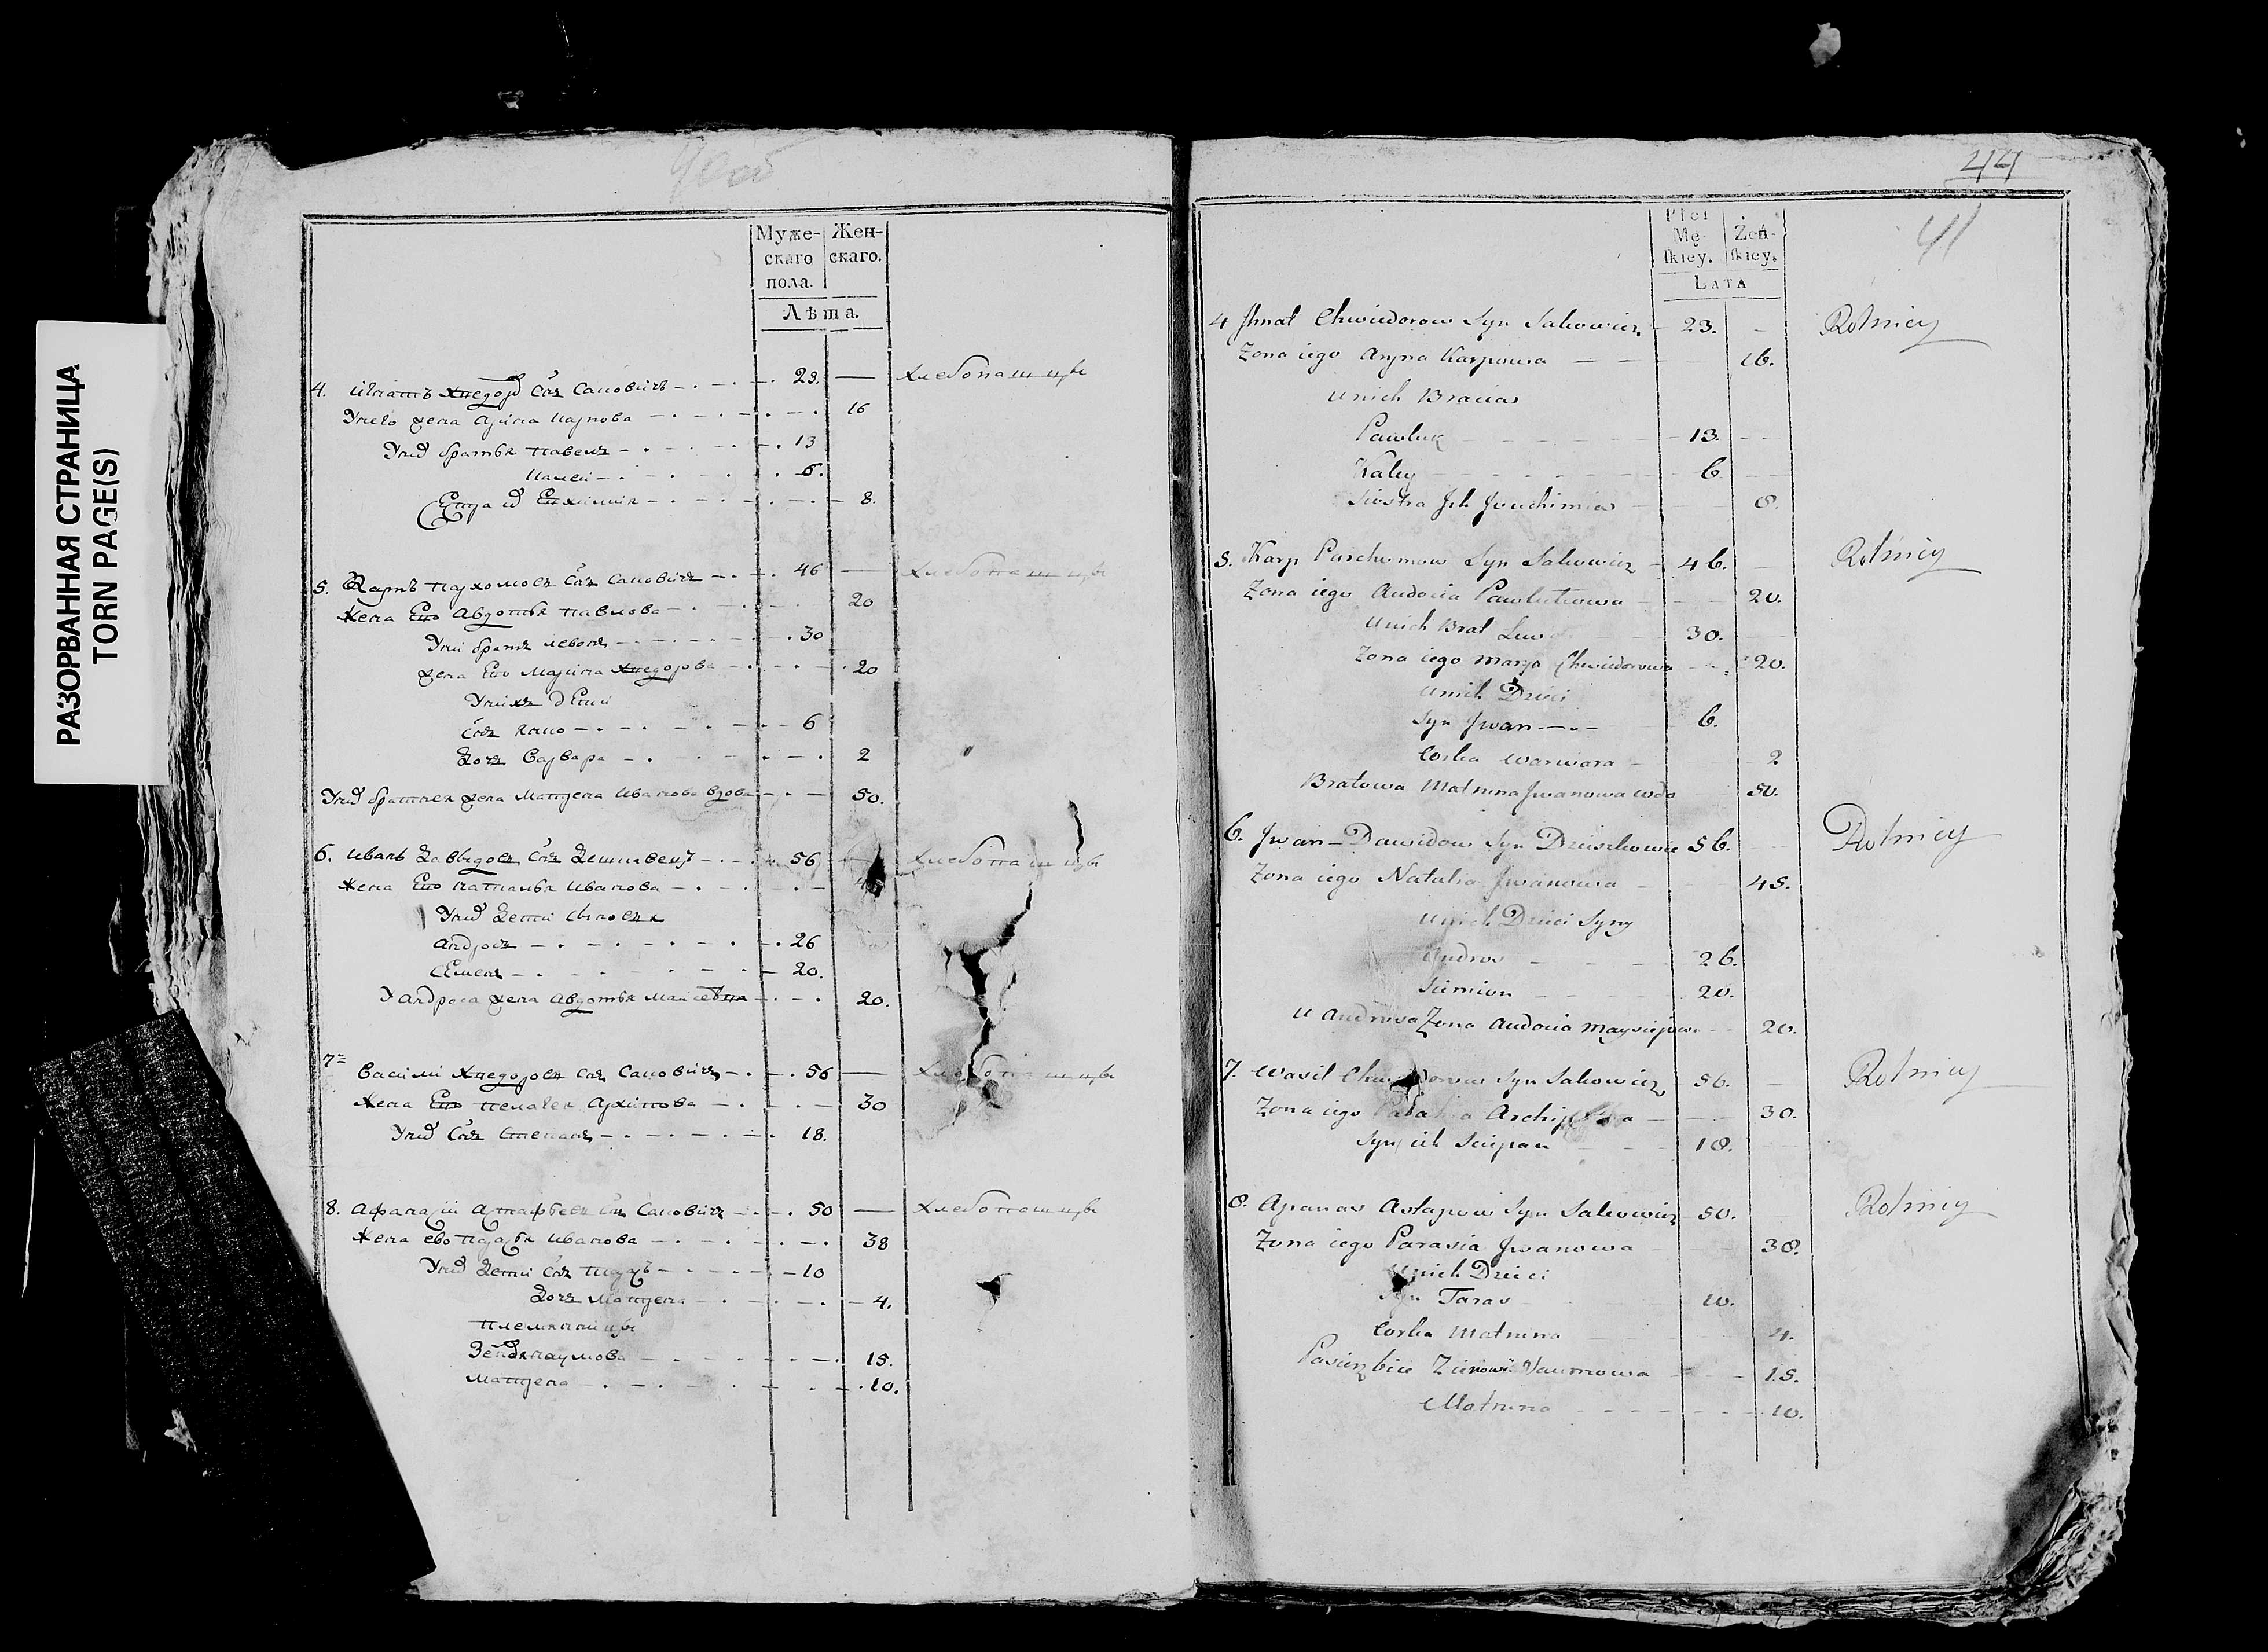 РАЗОРВАННАЯ СТРАНИЦА
TORN PAGE(S)
40об
Муже-
скаго
пола.
Жен-
скаго.
Лѣта.
4. Игнатъ Хведоровъ Снъ Саковичъ 23. — хлебопашцы
У него жена Арина Карпова 16
У ний братья Павелъ 13
Калей 6.
Естра их Евхимия 8.
5. Карпъ Пархомовъ Снъ Саковичъ 46 — хлебопашцы
Жена Ево Авдотья Павлова 20
У ний братъ Левонъ 30
жена Ево Марина Хведорова 20
У нихъ дети
Снъ 6
Дочь Варвара 2
У них братняя жена Матрена Иванова вдова 50.
6. Иванъ Давыдовъ Снъ 56 — хлебопашцы
Жена Ево Наталья Иванова
У них дети сыновья
Андросъ 26
Семенъ 20.
У Андроса жена Авдотья Майсевна 20.
7 Васили Хведоровъ Снъ Саковичъ 56 — хлебопашцы
Жена Ево Пелагея Архипова 30
У них Снъ Степанъ 18.
8. Афанасiй Астафьевъ Снъ Саковичъ 50 — хлебопашцы
Жена ево Парасья Иванова 38
У них Дети Снъ Тарасъ 10
Дочь Матрена 4.
племянницы
Наумова 15.
Матрена 10.
44
41
Płci
Mę-
ſkiey.
Żeń-
ſkiey.
LATA
4 Jhnat Chwiedorow Syn Sakowicz 23. — Rolnicy
Zona iego Aryna Karpowa 16.
U nich Bracia
Pawluk 13.
Kaley 6
Siostra Jch Jewchimia 8.
5. Karp Parchomow Syn Sakowicz 46. — Rolnicy
Zona iego Audocia Pawlukowa 20.
U nich Brat 30.
Zona iego Chwiedorowa 20.
U nich Dzieci
Syn Jwan 6.
Corka Warwara 2
Bratowa Matruna Jwanowa wdo 50.
6. Jwan Dawidow Syn 56. Rolnicy
Zona iego Natalia Jwanowa 45.
U nich Dzieci Syny
Andros 26.
Siemion 20.
U Androsa Zona Audocia Maysejowa 20.
7. Wasil Chwiedorow Syn Sakowicz 56. — Rolnicy
Zona iego Palahia Archipowa 30.
Syn ich Sciepan 18.
8. Apanas Astapow Syn Sakowicz 50. Rolnicy
Zona iego Parasia Jwanowa 38.
U nich Dzieci
Syn Taras 10.
Corka Matruna 4.
Pasierzbice Naumowa 15.
Matruna 10.